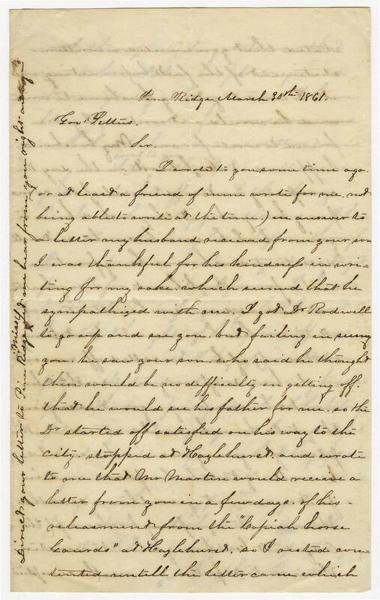 Pine Ridge March 30th 1861.
Gov Pettus
Sir.
I wrote to you some time ago
(or at least a friend of mine wrote for me, not
being able to write at the time) in answer to
a letter my husband received from your son
I was thankful for his kindness in wri-
ting for my sake which seemed that he
sympathized with me. I got Dr Rodwell
to go up and see you. but failing in seeing
you he saw your son, who said he thought
there would be no difficulty in getting off.
that he would see his father for me, so the
Dr started off satisfied on his way to the
city. stopped at Hazlehurst, and wrote
to me that Mr Martin would receive a
letter from you in a few days. of his
releasement from the "Copiah horse
Guards" at Hazlehurst, so I rested con-
tented untill the letter came which
Direct your letter to Pine Ridge Missi and me hear from you right away